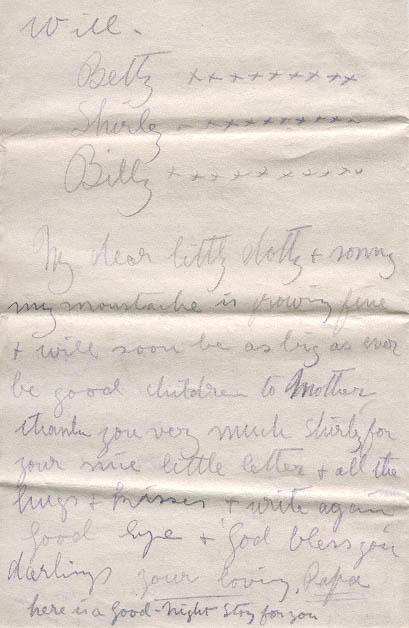 Will.
Betty xxxxxxxxx
Shirley xxxxxxxxxx
Billy xxxxxxxxxx
My dear little dolly + sonny
my moustache is growing fine
+ will soon be as big as ever
be good children to Mother
thank you very much Shirly for
your nice little letter + all the
hugs + kisses + write again
good bye + God bless you
darlings your loving Papa
here is a good-night story for you